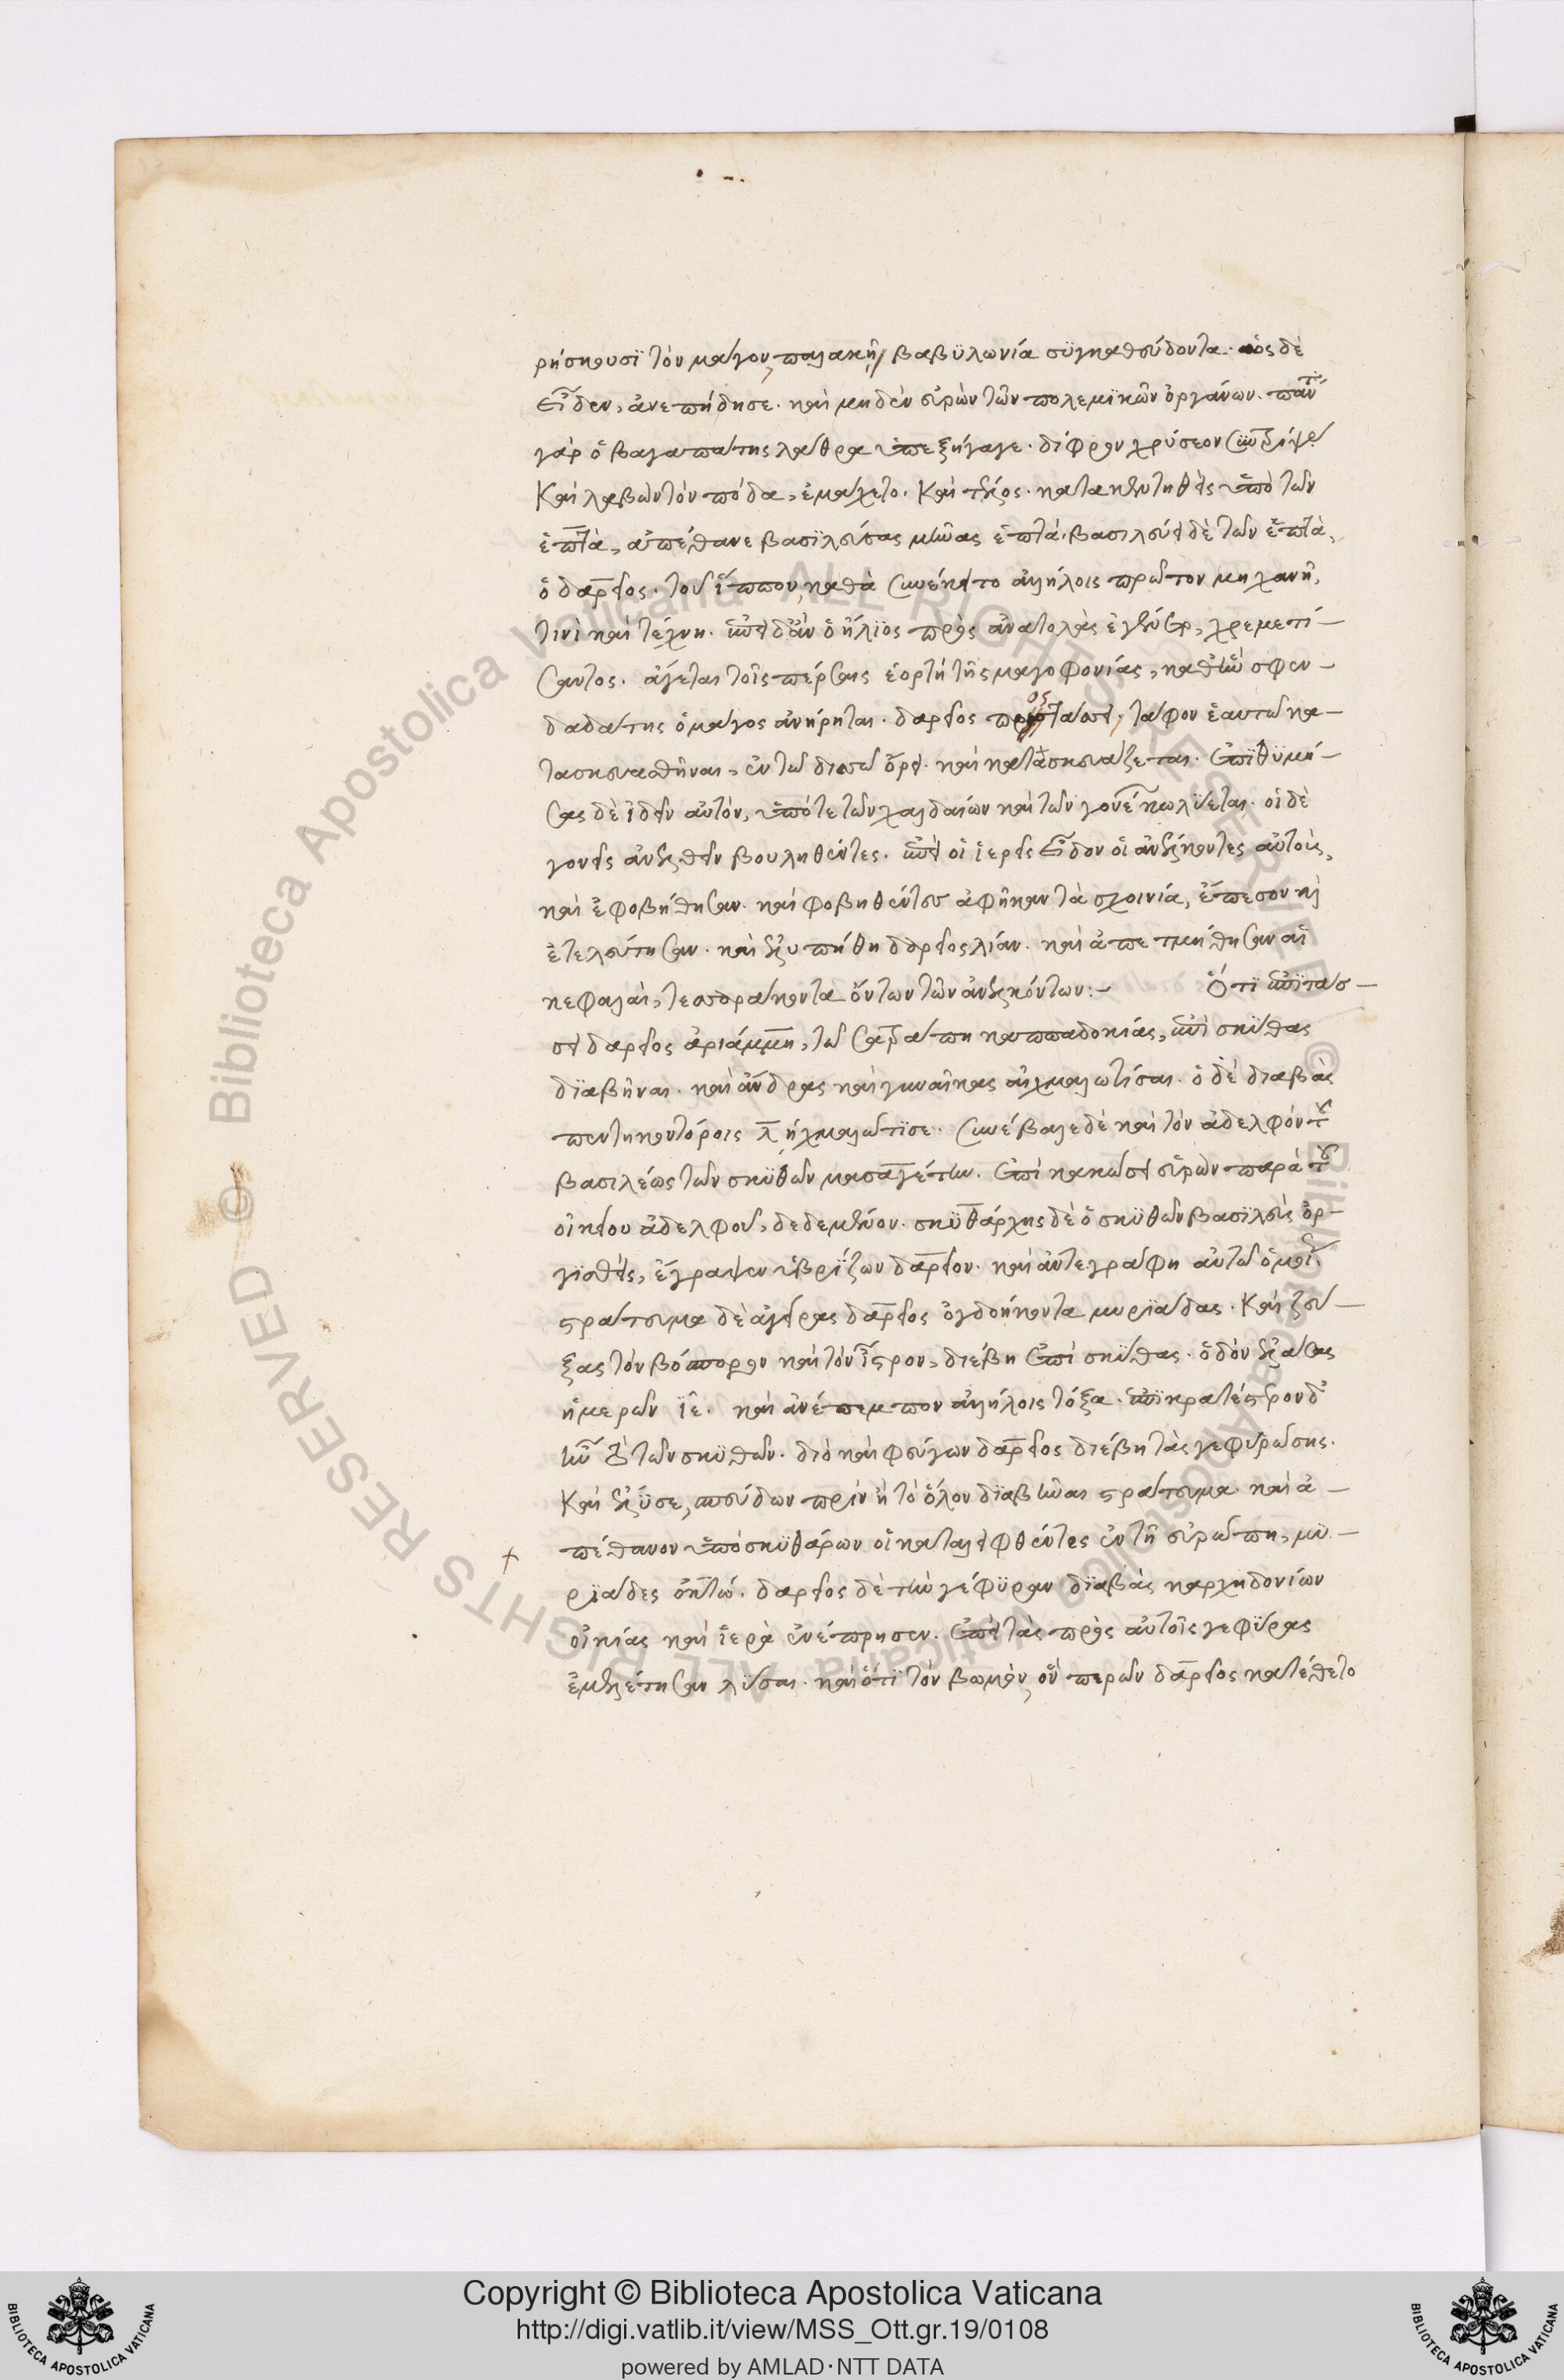 ρήσκουσϊ τὸν μάγον, παλακῆ βαβϋλωνία σϋγκαθεύδοντα. ὡς δὲ
εἶδεν, ἀνεπήδησε. καὶ μηδὲν εὑρὼν τῶν πολεμϊκῶν ὀργάνων. πάντα
γὰρ ὁ βαγαπάτης λάθρα ὑπεξήγαγε. δίφρον χρύσεον συντρίψας
Καὶ λαβὼν τὸν πόδα, ἐμάχετο. Καὶ τέλος. κατακεντηθεὶς ὑπὸ τῶν
ἑπτὰ, ἀπέθανε βασϊλεύσας μῆνας ἑπτά. βασιλεύει δὲ τῶν ἑπτὰ,
ὁ δαρεῖος. τοῦ ἵππου, καθὰ συνέκειτο ἀλλήλοις πρῶτον μηχανῇ,
τινὶ καὶ τέχνη. ἐπεὶ δ' ἂν ὁ ἥλϊος πρὸς ἀνατολὰς ἐγένετο, χρεμετί-
σαντος. ἄγεται τοῖς πέρσαις ἑορτὴ τῆς μαγοφονίας, καθ' ἣν σφεν-
δαδάτης ὁ μάγος ἀνήρηται. δαρεῖος προστάσσει, τάφον ἑαυτῶ κα-
τασκευασθῆναι, ἐν τῶ δισσῶ ὄρει. καὶ κατασκευάζεται. ἐπϊθϋμή-
σας δὲ ἰδεῖν αὐτὸν, ὑπό τε τῶν χαλδαίων καὶ τῶν γονέων κωλύεται. οἱ δὲ
γονεῖς ἀνελθεῖν βουληθέντες. ἐπεὶ οἱ ἱερεῖς εἶδον οἱ ἀνέλκοντες αὐτοὺς,
καὶ ἐφοβήθησαν. καὶ φοβηθέντες ἀφῆκαν τὰ σχοινία, ἔπεσον καὶ
ἐτελεύτησαν. καὶ ἐλυπήθη δαρεῖος λίαν. καὶ ἀπετμήθησαν αἱ
κεφαλαὶ, τεσσαράκοντα ὄντων τῶν ἀνελκόντων:- Ὅτϊ ἐπϊτάσ-
σει δαρεῖος ἀριάμμη, τῶ σατράπη καππαδοκίας, ἐπὶ σκύθας
δϊαβῆναι. καὶ ἄνδρας καὶ γυναῖκας αἰχμαλωτίσαι. ὁ δὲ διαβὰς
πεντηκοντόροις λ ἠχμαλώτϊσε. συνέβαλε δὲ καὶ τὸν ἀδελφὸν τοῦ
βασιλέως τῶν σκϋθῶν μασαγέτην. ἐπὶ κακώσει εὑρὼν παρὰ τοῦ
οἰκείου ἀδελφοῦ, δεδεμένον. σκϋθάρχης δὲ ὁ σκϋθῶν βασϊλεὺς ὀρ-
γϊσθεὶς, ἔγραψεν ὑβρίζων δαρεῖον. καὶ ἀντεγράφη αὐτῶ ὁμοίως
στράτευμα δὲ ἀγείρας δαρεῖος ὀγδοήκοντα μυρϊάδας. Καὶ ζεύ-
ξας τὸν βόσπορον καὶ τὸν ἴστρον, διέβη ἐπὶ σκύθας. ὁδὸν ἐλάσας
ἡμερῶν ϊε. καὶ ἀντέπεμπον ἀλλήλοις τόξα. ἐπϊκρατέστερον δ'
ἦν τὸ τῶν σκϋθῶν. διὸ καὶ φεύγων δαρεῖος διέβη τὰς γεφυρώσεις.
Καὶ ἔλϋσε, σπεύδων πρὶν ἢ τὸ ὅλον δϊαβῆναι στράτευμα. καὶ ἀ-
πέθανον ὑπὸ σκϋθάρων οἱ καταλειφθέντες ἐν τῆ εὐρώπη, μϋ-
ρϊάδες ὀκτώ. δαρεῖος δὲ τὴν γέφϋραν δϊαβὰς καρχηδονίων
οἰκίας καὶ ἱερὰ ἐνέπρησεν. ἐπεὶ τὰς πρὸς αὐτοῖς γεφύρας
ἐμελέτησαν λῦσαι. καὶ ὅτϊ τὸν βωμὸν, ὃν περῶν δαρεῖος κατέθετο
Copyright © Biblioteca Apostolica Vaticana
http://digi.vatlib.it/view/MSS_Ott.gr.19/0108
powered by AMLAD·NTT DATA